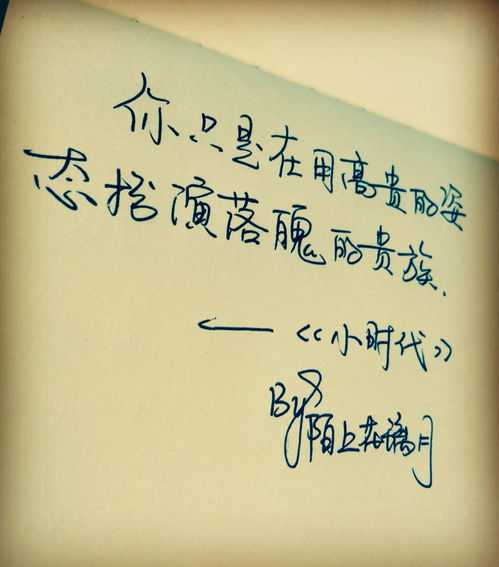 你只是在用高贵的姿
态扮演落魄的贵族.
—《小时代》
By 陌上 月